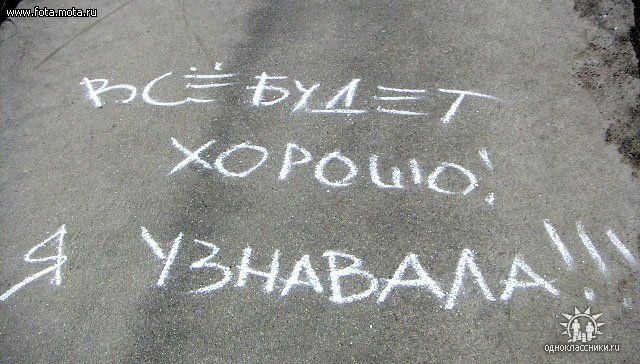 www.fota.mota.ru
ВСЁ БУДЕТ
ХОРОШО!
Я УЗНАВАЛА!!!
одноклассники.ru